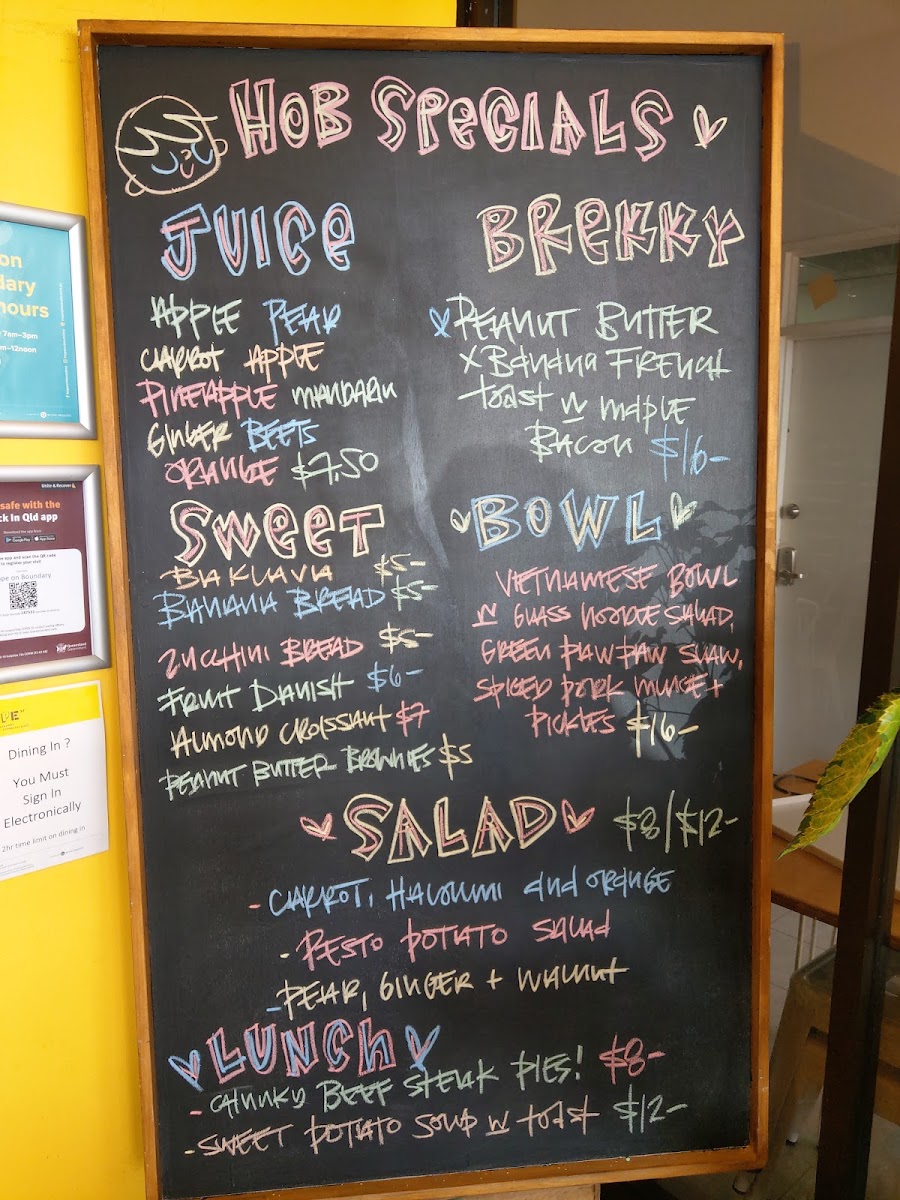 HOB SPECIALS
JUICE
APPLE PEAR
CARROT APPLE
PINEAPPLE MANDARIN
GINGER BEETS
ORANGE $7,50
BREKKY
PEANUT BUTTER
X BANANA FRENCH
TOAST W MAPLE
BACON $16-
SWEET
BAKLAVA $5-
BANANA BREAD $5-
ZUCCHINI BREAD $5-
FRUIT DANISH $6-
ALMOND CROISSANT $7
PEANUT BUTTER BROWNIES $5
BOWL
VIETNAMESE BOWL
W GLASS NOODLE SALAD,
GREEN PAWPAW SLAW,
SPICED PORK MINCE +
PICKLES $16-
SALAD $8/$12-
- CARROT, HALOUMI and ORANGE
- PESTO POTATO SALAD
- PEAR, GINGER + WALNUT
LUNCH
- CHUNKY BEEF STEAK PIES! $8-
- SWEET POTATO SOUP W TOAST $12-
on
dary
hours
7am–3pm
m–12noon
Unite & Recover
safe with the
ck In Qld app
Google Play
App Store
pe on Boundary
Queensland
Government
PE"
Dining In ?
You Must
Sign In
Electronically
2hr time limit on dining in